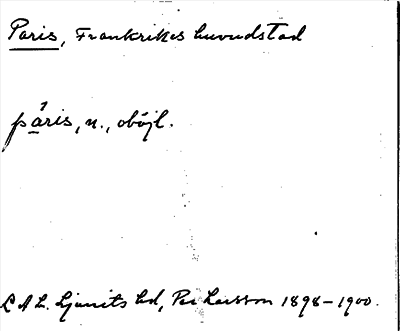 Paris, Frankrikes huvudstad
páris, n., oböjl.
L A L. Ljunits hd, Per Larsson 1898-1900.